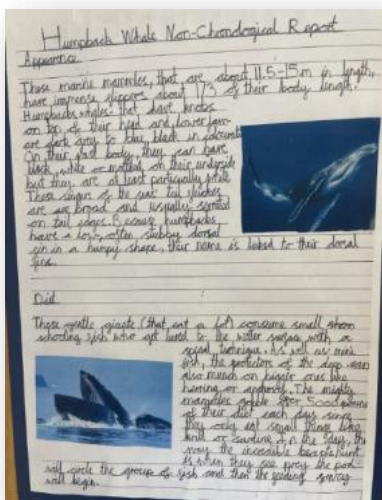 Humpback Whale Non-Chronological Report
Appearance
These marine mammals, that are about 11.5-15m in length,
have immense flippers about 1/3 of their body length.
Humpbacks whales that have knobs
on top of their head and lower jaw
are dark grey to blue black in
On their body, they can have
black, white or mottled on their underside
but they are at least white
These singers of the sea tail
are broad and usually
on tail edges. Because humpbacks
have a low, often stubby dorsal
fin in a humpy shape, their name is linked to their dorsal
fins.
Did
These gentle giants (that eat a lot) consume small
schooling fish who get lured to the water surface with a
special technique. As well as
fish, the protectors of the deep
also munch on bigger ones like
herring or anchovy. The mighty
gobble 5000
of their diet each day since
they only eat small things like
krill or sardine in the day, the
way the incredible hunt
is when they see prey the pod
will circle the group of fish and then the feeding
will begin.